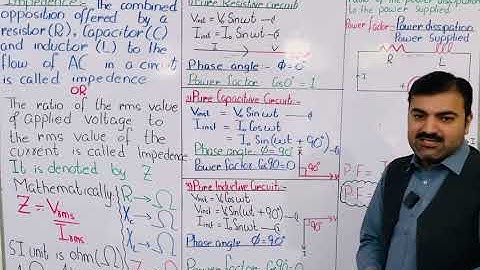 Impedence:- The combined
opposition offered by a
resistor(R), Capacitor(C)
and inductor(L) to the
flow of AC in a circuit
is called impedence
OR
The ratio of the rms value
of applied voltage to
the rms value of the
current is called impedence
It is denoted by Z
Mathematically:
Z = Vrms
Irms
R → Ω
XL → Ω
Xc → Ω
Z → Ω
SI unit is ohm(Ω)
Pure Resistive Circuit:-
Vinst = V₀ Sinωt
Iinst = I₀ Sinωt
I
V
Phase angle :- ϕ=0°
Power factor Cos0° = 1
Pure Capacitive Circuit:-
Vinst = V₀ Sinωt
Iinst = I₀ Cosωt
Iinst = I₀ Sin(ωt + 90°)
Phase angle ϕ = 90°
Power factor Cos90=0
90°
Pure Inductive Circuit:-
Vinst = V₀ Cosωt
Vinst = V₀ Sin(ωt + 90°)
Iinst = I₀ Sinωt
90°
Phase angle ϕ=90°
Power factor Cos90=0
ratio of the power dissipation
to the power supplied
Power factor= Power dissipation
Power supplied
R
L
I
P.F =
P.F =